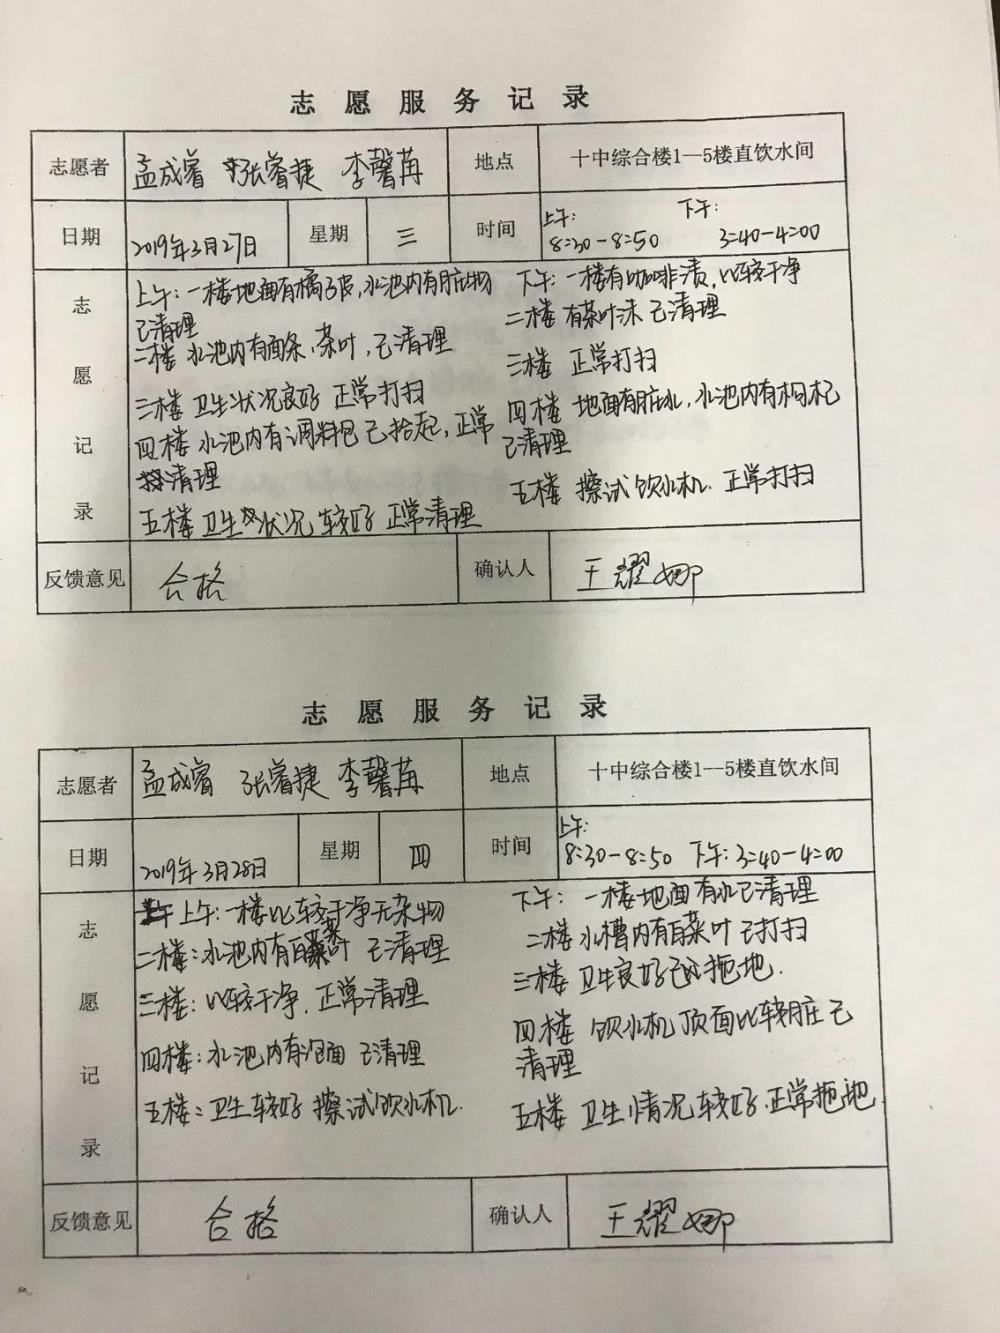 志愿服务记录
志愿者 孟成睿 张睿捷 李馨苒 地点 十中综合楼1—5楼直饮水间
日期 2019年3月27日 星期 三 时间 上午: 8:30-8:50 下午: 3:40-4:00
志愿记录
上午:一楼地面有橘子皮,水池内有脏物
已清理
二楼 水池内有面条,茶叶,已清理
三楼 卫生状况良好 正常打扫
四楼 水池内有调料包已拾起,正常
清理
五楼 卫生状况较好 正常清理
下午:一楼有咖啡渍,比较干净
二楼 有茶叶沫 已清理
三楼 正常打扫
四楼 地面有脏水,水池内有枸杞
已清理
五楼 擦试饮水机.正常打扫
反馈意见 合格 确认人 王耀娜
志愿服务记录
志愿者 孟成睿 张睿捷 李馨苒 地点 十中综合楼1—5楼直饮水间
日期 2019年3月28日 星期 四 时间 上午: 8:30-8:50 下午:3:40-4:00
志愿记录
上午:一楼比较干净无杂物
二楼:水池内有白菜叶 已清理
三楼:比较干净.正常清理
四楼:水池内有泡面 已清理
五楼:卫生较好 擦试饮水机.
下午:一楼地面有水已清理
二楼 水槽内有白菜叶 已打扫
三楼 卫生良好已拖地.
四楼 饮水机顶面比较脏已
清理
五楼 卫生情况较好.正常拖地.
反馈意见 合格 确认人 王耀娜